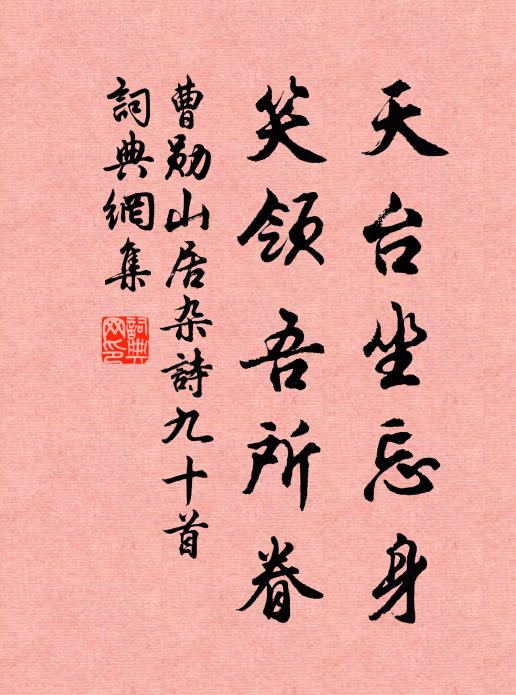 天台坐忘身
笑領吾所眷
曹勛山居杂詩九十首
詞典網集
詞典网印